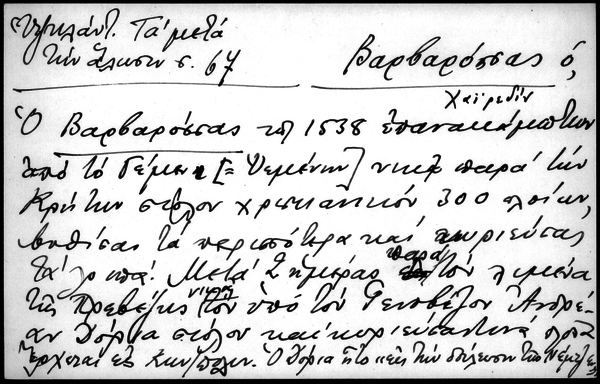 Τὰ μετὰ
τὴν ἅλωσιν σ. 67
Βαρβαρόσσας ὁ,
Χαϊρεδὶν
Ὁ Βαρβαρόσσας τῷ 1538 ἐπανακάμπτων
ἀπὸ τὸ Γέμεν [= Ὑεμένην] νικᾷ παρὰ τὴν
Κρήτην στόλον χριστιανικὸν 300 πλοίων,
βυθίσας τὰ περισσότερα καὶ κυριεύσας
τὰ λοιπά. Μετὰ 2 ἡμέρας παρὰ τὸν λιμένα
τῆς Πρεβέζης νικᾷ τὸν ὑπὸ τοῦ Γενοβέζου Ἀνδρέ-
αν Δόρια στόλον καὶ κυριεύσας τινὰ πλοῖα
ἔρχεται εἰς Κων/πολιν. Ὁ Δόρια τὴν